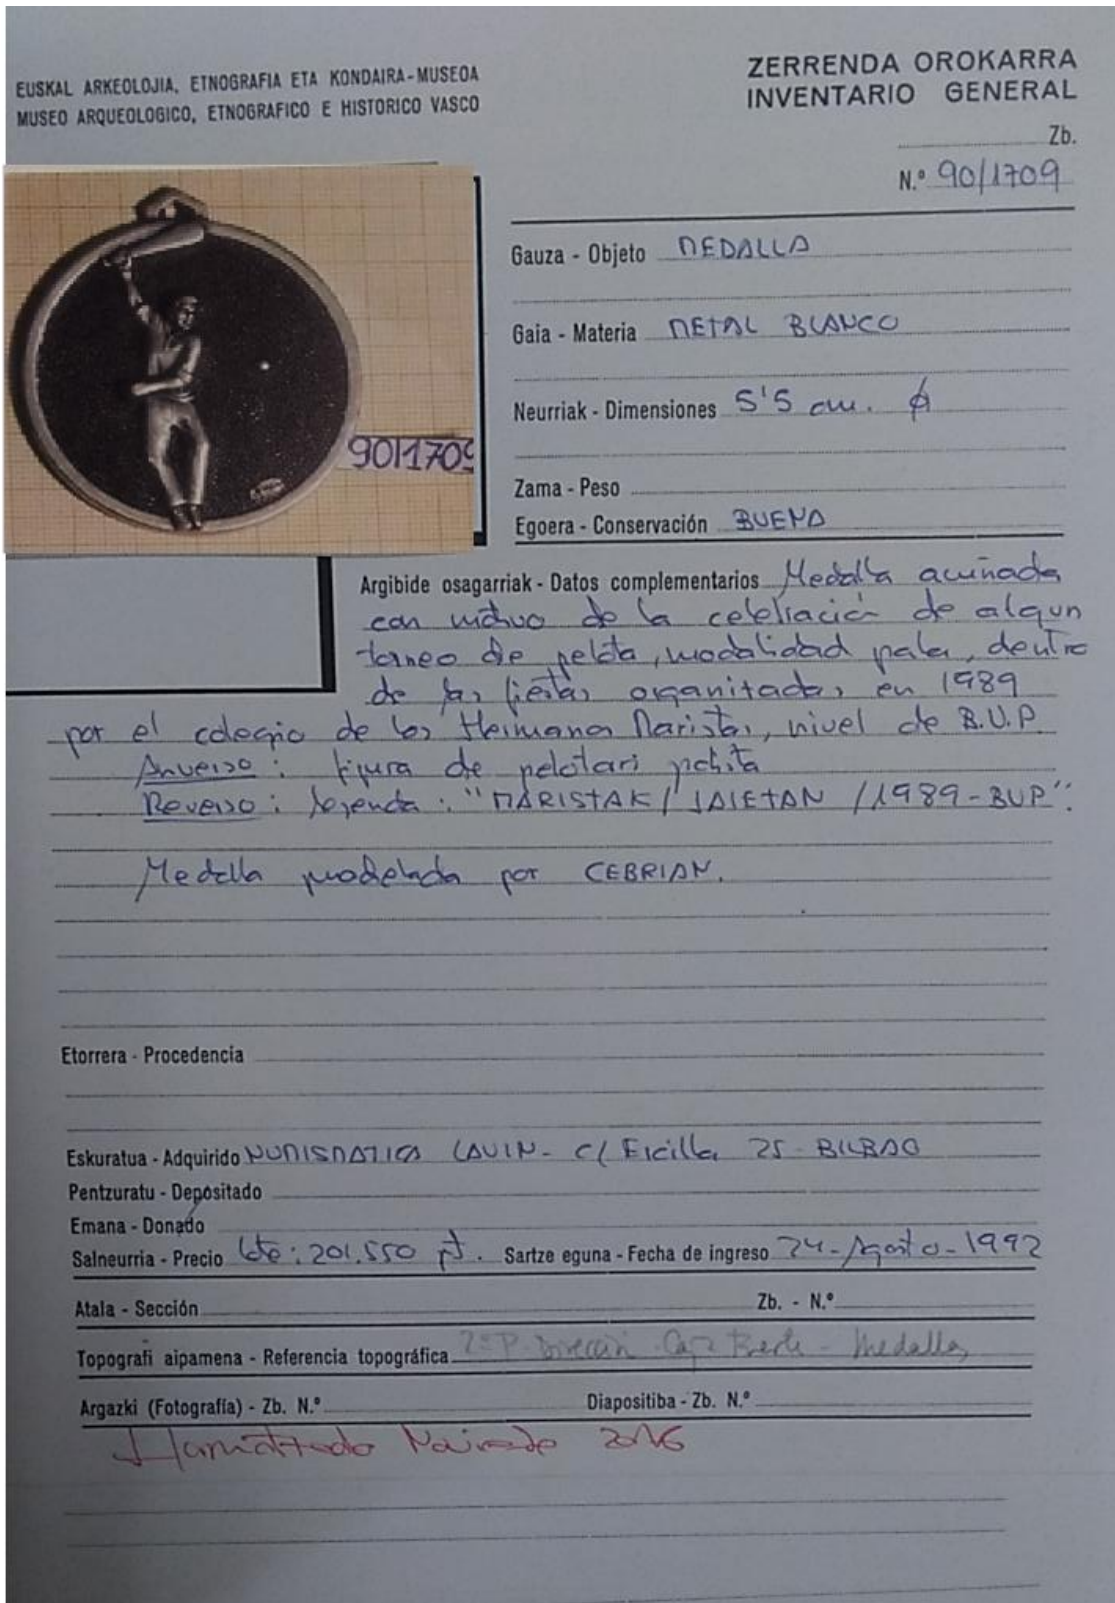 EUSKAL ARKEOLOJIA, ETNOGRAFIA ETA KONDAIRA-MUSEOA
MUSEO ARQUEOLOGICO, ETNOGRAFICO E HISTORICO VASCO
ZERRENDA OROKARRA
INVENTARIO GENERAL
Zb.
N.º 90/1709
90/1709
Gauza - Objeto MEDALLA
Gaia - Materia METAL BLANCO
Neurriak - Dimensiones 5'5 cm. ϕ
Zama - Peso
Egoera - Conservación BUENA
Argibide osagarriak - Datos complementarios Medalla acuñada
con motivo de la celebración de algun
torneo de pelota, modalidad pala, dentro
de las fiestas organizadas en 1989
por el colegio de los Hermanos Maristas, nivel de B.U.P.
Anverso: figura de pelotari palista
Reverso: leyenda: "MARISTAK / JAIETAN / 1989-BUP".
Medalla modelada por CEBRIAN.
Etorrera - Procedencia
Eskuratua - Adquirido NUMISMATICA LAVIN - C/ Ercilla 25 - BILBAO
Pentzuratu - Depósitado
Emana - Donado
Salneurria - Precio lote: 201.550 pt. Sartze eguna - Fecha de ingreso 24-Agosto-1992
Atala - Sección Zb. - N.º
Topografi aipamena - Referencia topográfica 2ª P. Dirección - Caja Fuerte - Medallas
Argazki (Fotografía) - Zb. N.º Diapositiba - Zb. N.º
2016